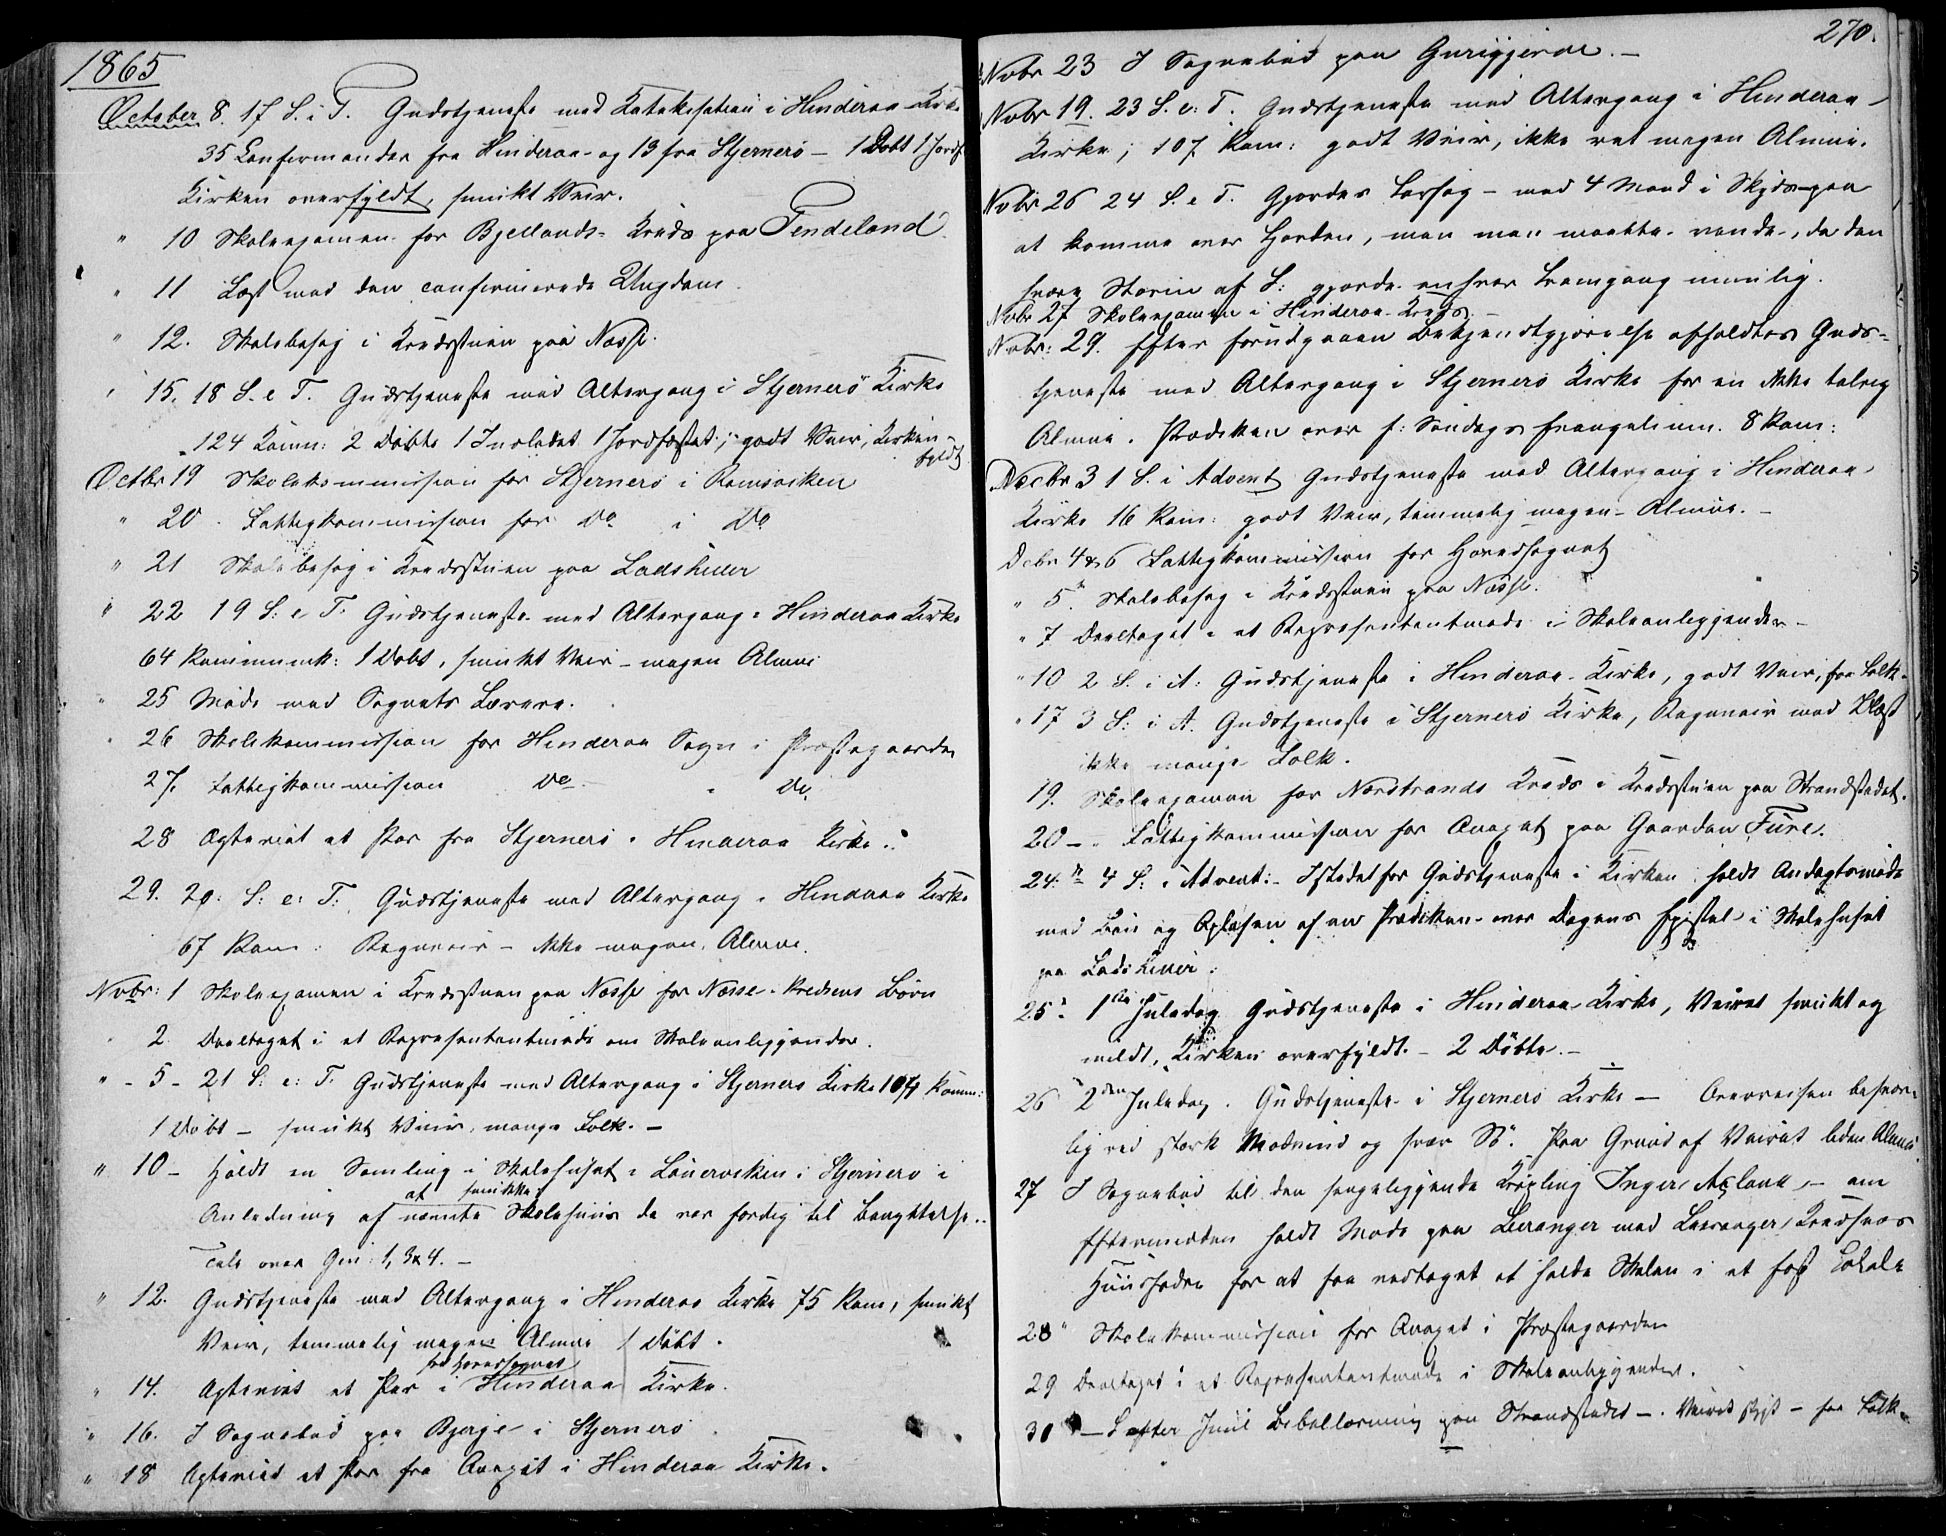 1865
October 8. 17 S. e T. Gudstjeneste med Katekisation i Hinderaa Kirke
35 Confirmander fra Hinderaa og 13 fra Stjernerö – 1 Döbt 1 Jordf.
Kirken overfyldt, smukt Veir.
" 10 Skoleexamen for Bjellands-Kreds paa Tendeland
" 11 Læst med den confirmerede Ungdom.
" 12. Skolebesög i Kredsstuen paa Næsse.
" 15. 18 S. e T. Gudstjeneste med Altergang i Stjernerö Kirke
124 Komm: 2 Döbte 1 Introdet 1 Jordfæstet; godt Veir, Kirken
fyldt
Octbr 19 Skolekommission for Stjernerö i Ramsviken
" 20 Fattigkommission for Do i Do
" 21 Skolebesög i Kredsstuen paa Ladshuer
" 22 19 S: e T. Gudstjeneste med Altergang i Hinderaa Kirke
64 Kommunik: 1 Döbt, smukt Veir – megen Almue
" 25 Möde med Sognets Lærere.
" 26 Skolekommission for Hinderaa Sogn i Præstegaarden
27. Fattigkommission Do " Do.
28 Ægteviet et Par fra Stjernerö i Hinderaa Kirke.
29. 20. S: e: T: Gudstjeneste med Altergang i Hinderaa Kirke
67 Kom: Regnveir – ikke megen Almue.
Novbr: 1 Skoleexamen i Kredsstuen paa Næsse for Næsse-Kredsens Börn
" 2 Deeltaget i et Repræsentantmöde om Skoleanliggender.
" – 5 – 21 S: e: T. Gudstjeneste med Altergang i Stjernerö Kirke 104 Komm:
1 Döbt – smukt Veir, mange Folk. –
" 10 – Holdt en Samling i Skolehuset i Löuerviken i Stjernerö i
at smukke
Anledning af nævnte Skolehuus da var færdig til Benyttelse..
Tale over Gen: 1, 3 & 4. –
" 12. Gudstjeneste med Altergang i Hinderaa Kirke 75 Kom, smukt
Veir, temmelig megen Almue 1 Döbt.
fra Hovedsognet
" 14. Ægteviet et Par i Hinderaa Kirke.
" 16. I Sognebud paa Bjerge i Stjernerö
" 18 Ægteviet et Par fra Annexet i Hinderaa Kirke.
270.
Nobr 23 I Sognebud paa
Nobr 19. 23 S. e: T. Gudstjeneste med Altergang i Hinderaa
Kirke; 107 Kom: godt Veir, ikke ret megen Almue.
Nobr 26 24 S. e T. Gjordes Forsög – med 4 Mand i Skyds – paa
at komme over Fjorden, men man maatte vende, da den
svære Storm af S: gjorde enhver Fremgang umulig.
Nobr 27 Skoleexamen i Hinderaa Kreds –
Nobr: 29. Efter forudgaaen Bekjendtgjörelse afholdtes Guds-
tjeneste med Altergang i Stjernerö Kirke for en ikke talrig
Almue. Prædiken over f: Söndags Evangelium. 8 Kom:
Decbr 3 1 S. i Advent Gudstjeneste med Altergang i Hinderaa
Kirke 16 Kom: godt Veir, temmelig megen Almue. –
Debr 4 & 6 Fattigkommission for Hovedsognet
" 5. Skolebesög i Kredsstuen paa Næsse.
" 7 Deeltaget i et Repræsentantmöde i Skoleanliggender –
" 10 2 S. i A: Gudstjeneste i Hinderaa Kirke, godt Veir, faa Folk.
" 17 3 S: i A. Gudstjeneste i Stjernerö Kirke, Regnveir med Blæst
ikke mange Folk.
19. Skoleexamen for Nordtrands Kreds i Kredsstuen paa Strandstedet.
20 – " Fattigkommission for Annexet paa Gaarden Fure.
24. 4 S: i Advent: – Istedetfor Gudstjeneste i Kirken holdt Andagtsmöde
med Bön og Oplæsen af en Prædiken over Dagens Epistel i Skolehuset
paa Ladshuer.
25. 1ste Juledag Gudstjeneste i Hinderaa Kirke, Veiret smukt og
mildt, Kirken overfyldt. – 2 Döbte. –
26 2den Juledag. Gudstjeneste i Stjernerö Kirke – Overreisen besvær-
lig ved stærk Modvind og svær Sö. Paa Grund af Veiret liden Almue.
27 I Sognebud til den sengeliggende Kröbling Inger – om
Eftermidden holdt Möde paa Leranger med Leeranger Kredses
Huusfædre for at faa vedtaget at holde Skolen i et fast Lokale
28 " Skolekommission for Annexet i Præstegaarden
29 Deeltaget i et Repræsentantmöde i Skoleanliggender.
30 – S efter Juul Bibellæsning paa Strandstedet –. Veiret stygt – faa Folk.